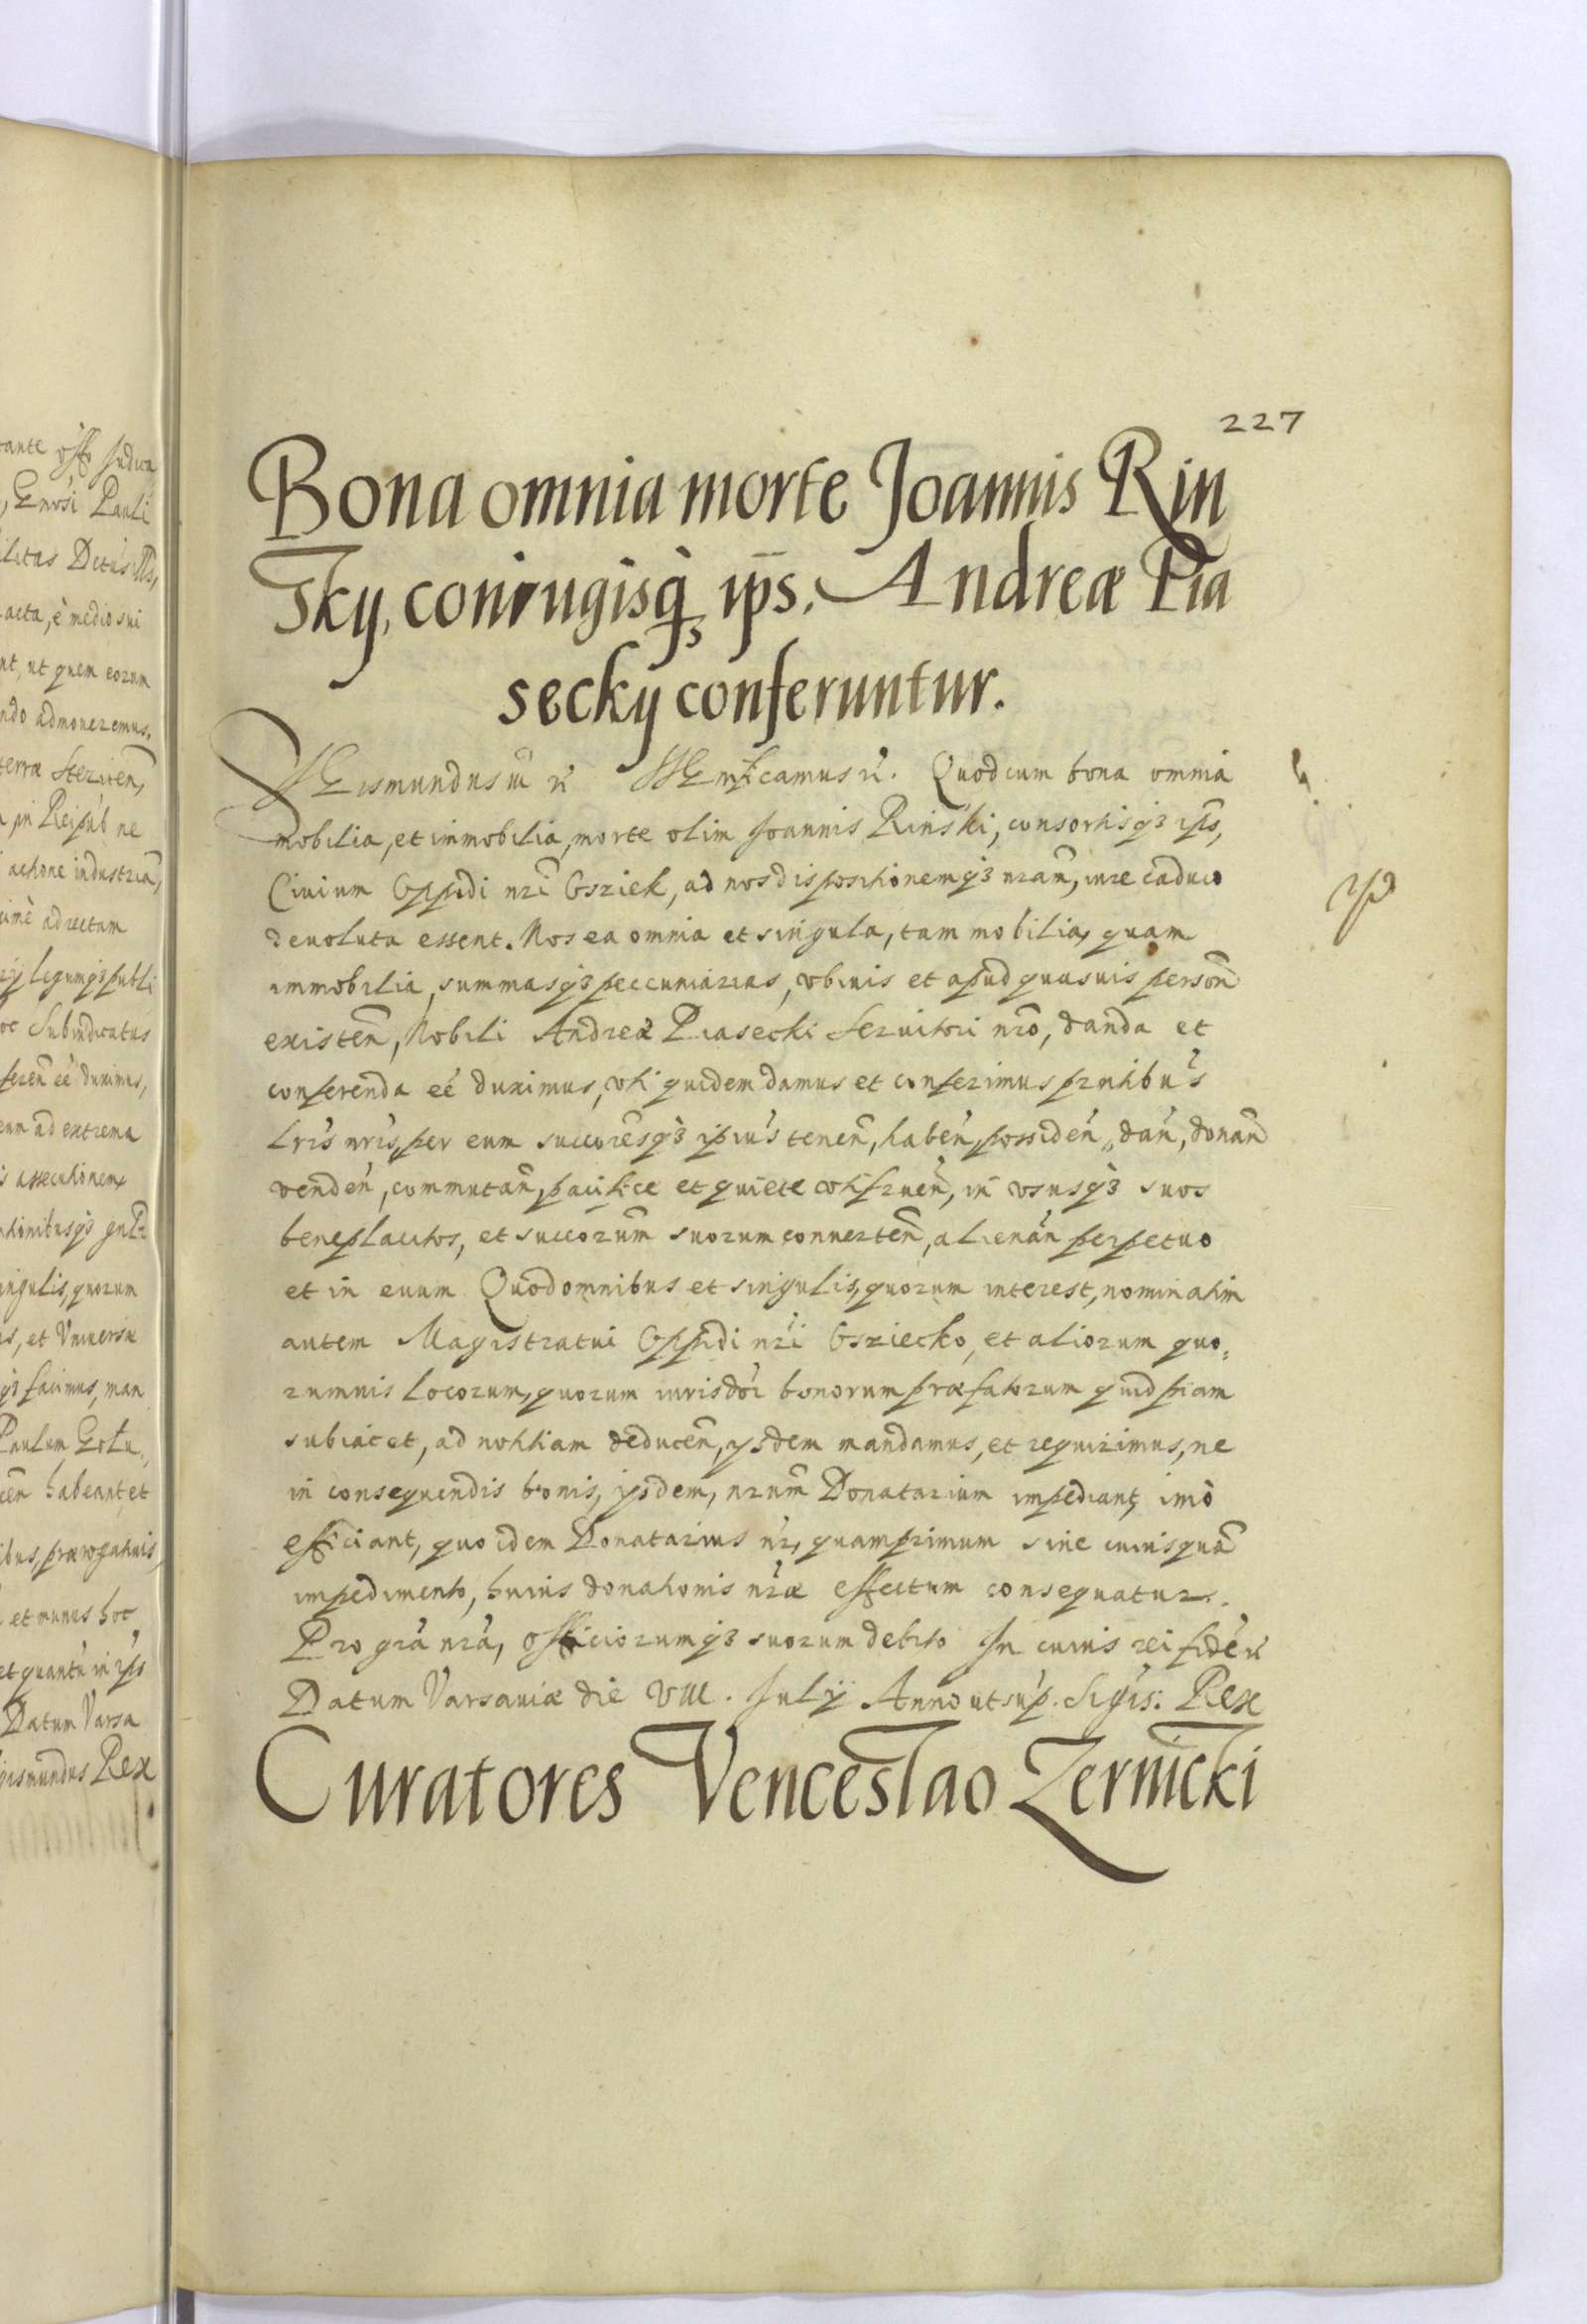 227
Bona omnia morte Joannis Rin
sky, coniugisq3 ips. Andreæ Pia
secky conferuntur.
Sigismundus III rc Significamus rc. Quod cum bona omnia
mobilia, et immobilia, morte olim Joannis Rinski, consortisq3 ips,
Civium Oppidi nri Osziek, ad nos dispositionemq3 nram, iure caduco
devoluta essent. Nos ea omnia et singula, tam mobilia, quam
immobilia, summasq3 peccuniarias, vbiuis et apud quasuis person
existen, Nobili Andreæ Piasecki Seruitori nro, danda et
conferenda eé duximus, vti quidem damus et conferimus prntibus
Lris nris, per eum succoresq3 ipius tenen, haben, possiden, dan, donan
venden, commutan, pacifice et quiete vtifruen, in vsusq3 suos
beneplacitos, et succorum suorum conuerten, alienan perpetuo
et in euum Quod omnibus et singulis, quorum interest, nominatim
autem Magistratui Oppidi nri Osziecko, et aliorum quo,
rumuis locorum, quorum iurisdoi bonorum præfatorum quidpiam
subiacet, ad notitiam deducen, ysdem mandamus, et requirimus, ne
in consequendis bonis, ysdem, nrum Donatarium impediant, imo
efficiant, quo idem Donatarius nr, quamprimum sine cuiusquã
impedimento, huius donationis nræ effectum consequatur.
Pro grã nrã, officiorumq3 suorum debito In cuius rei fidẽ rc
Datum Varsauiæ die VIII. July Anno ut sup. Sigis: Rex
Curatores Venceslao Zernicki